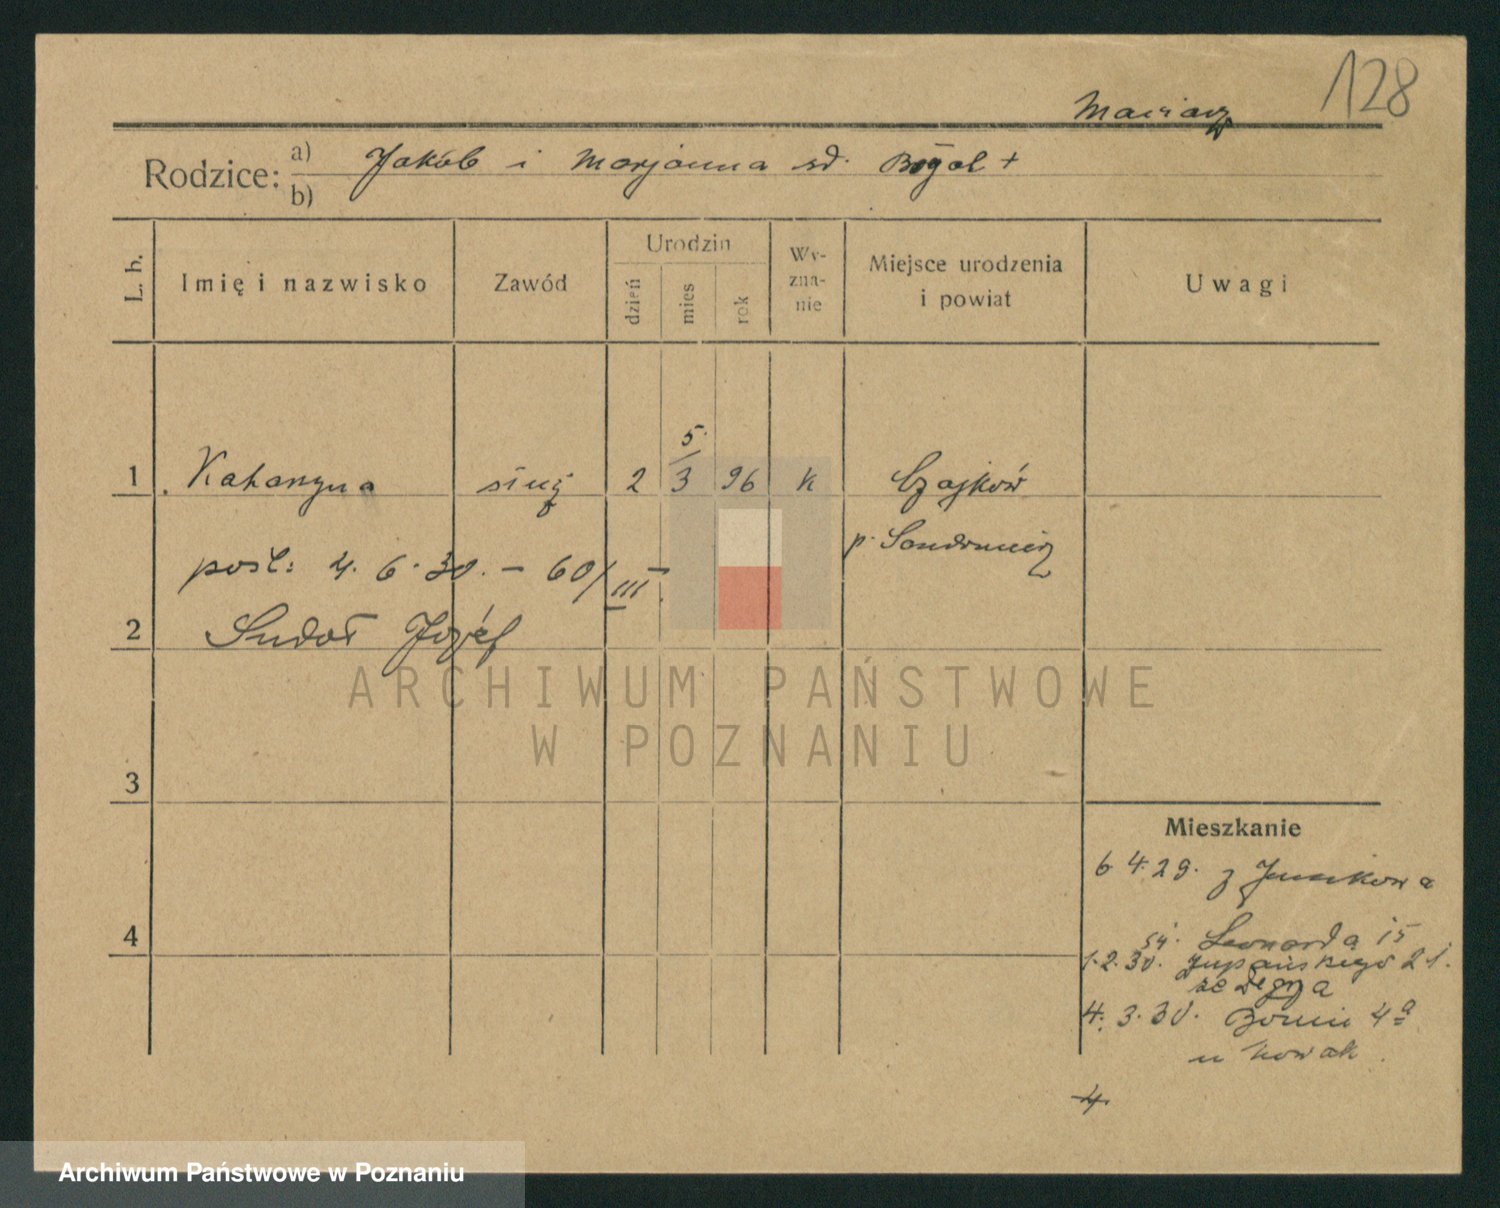 128
Maciacz
Rodzice: a) b) Jakób i Marjanna zd. Bogal +
L. b.
Imię i nazwisko
Zawód
Urodzin
dzień
mies
rok
Wy-
zna-
nie
Miejsce urodzenia
i powiat
Uwagi
1 Katarzyna służ 2 5./3 96 k Czajków
p. Sandomierz
pośl: 4. 6. 30. – 60/III.
2 Sudoł Józef
ARCHIWUM PAŃSTWOWE
W POZNANIU
3
Mieszkanie
6 4.29. z Junikowa
4
św. Leonarda 15
1.2.30. Żupańskiego 21.
4. 3. 30. Bonin 4a
u Nowak.
4
Archiwum Państwowe w Poznaniu